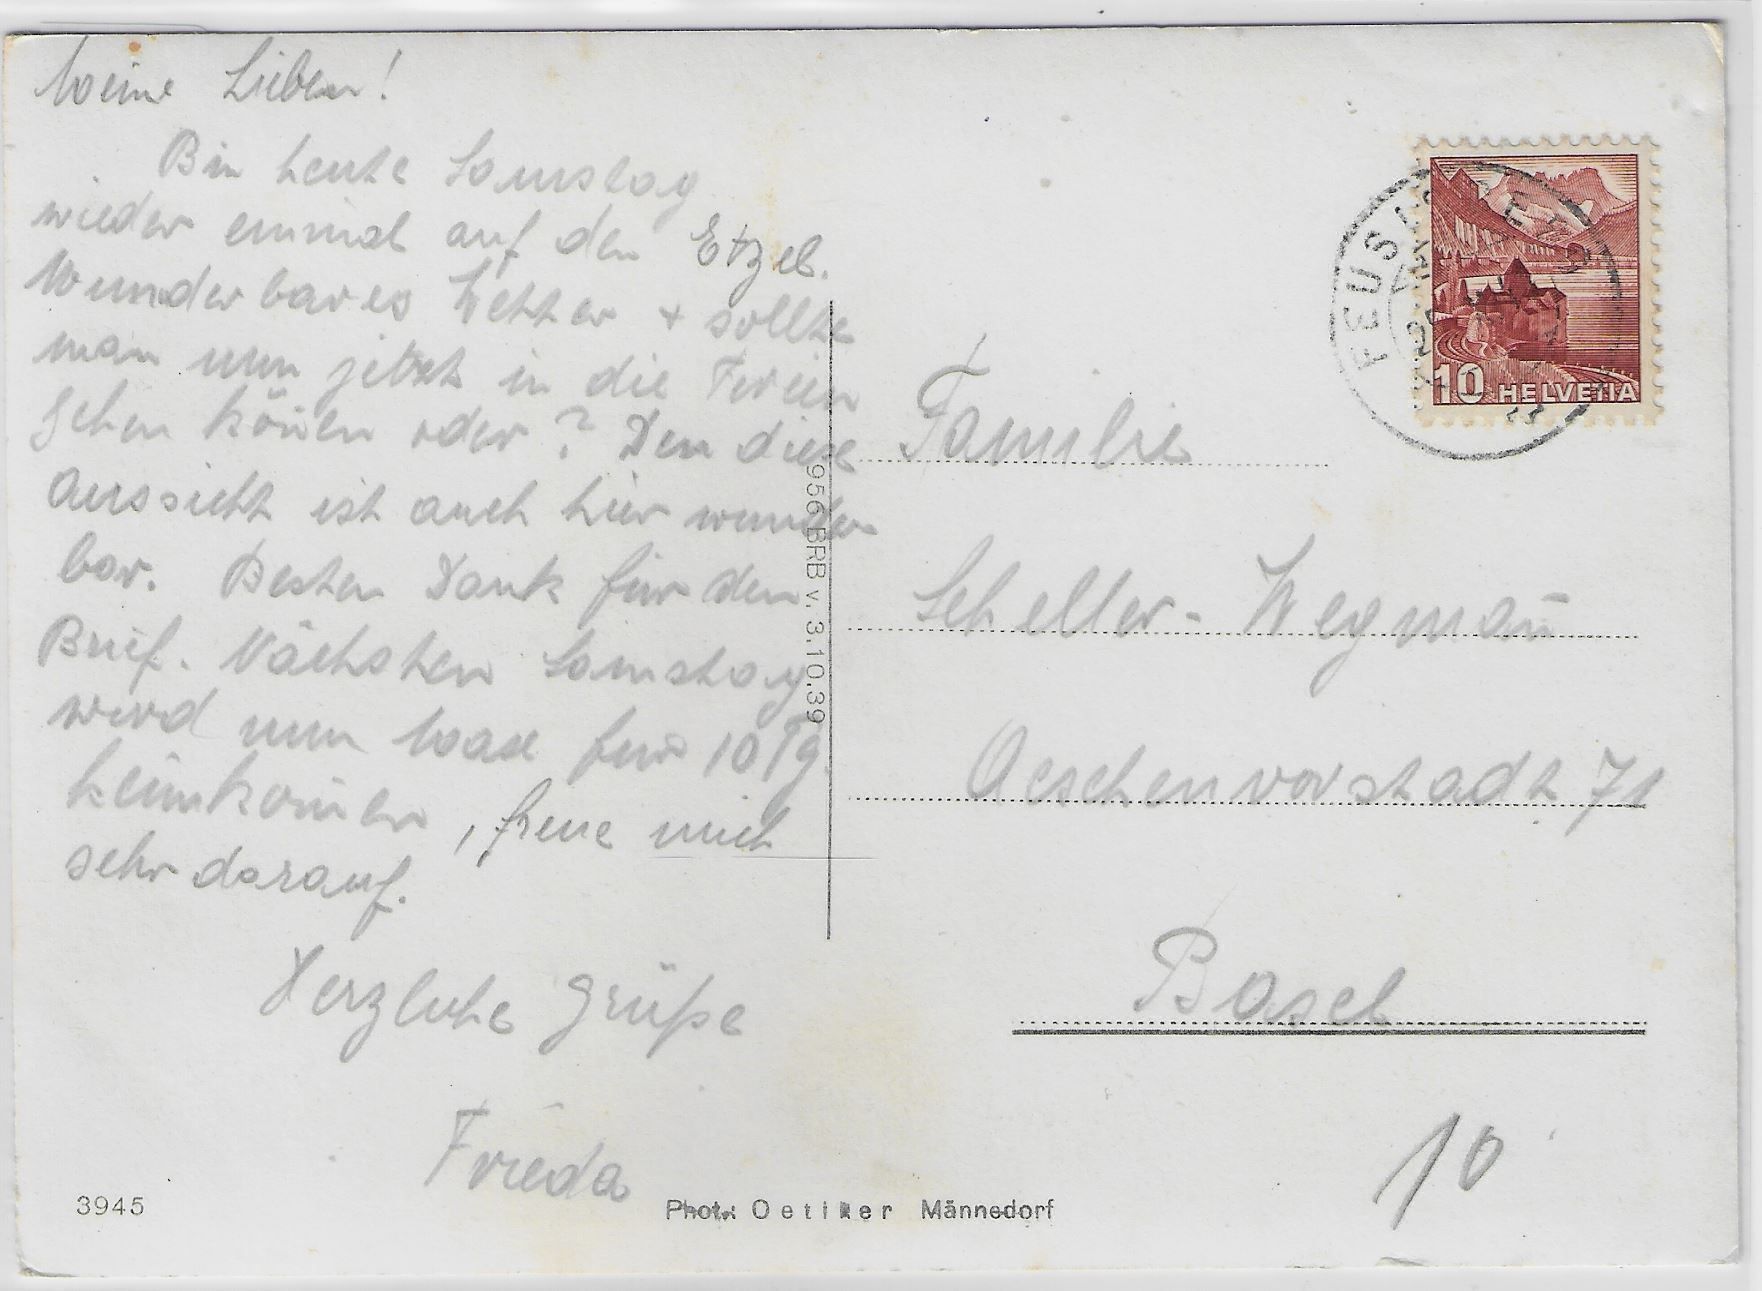 Meine Lieben!
Bin heute Samstag
wieder einmal auf den Etzel.
Wunderbares Wetter + sollte
man nun jetzt in die Ferien
gehen kön̄en oder? Den diese
Aussicht ist auch hier wunder
bar. Besten Dank für den
Brief. Nächsten Samstag
wird nun Max für 10 Tg.
heimkom̄en, freue mich
sehr darauf.
Herzliche Grüße
Frieda
3945
Photo: Oetiker Männedorf
956 BRB v. 3.10.39
FEUSI
10 HELVETIA
Familie
Scheller-Wegman̄
Aeschenvorstadt 71
Basel
10